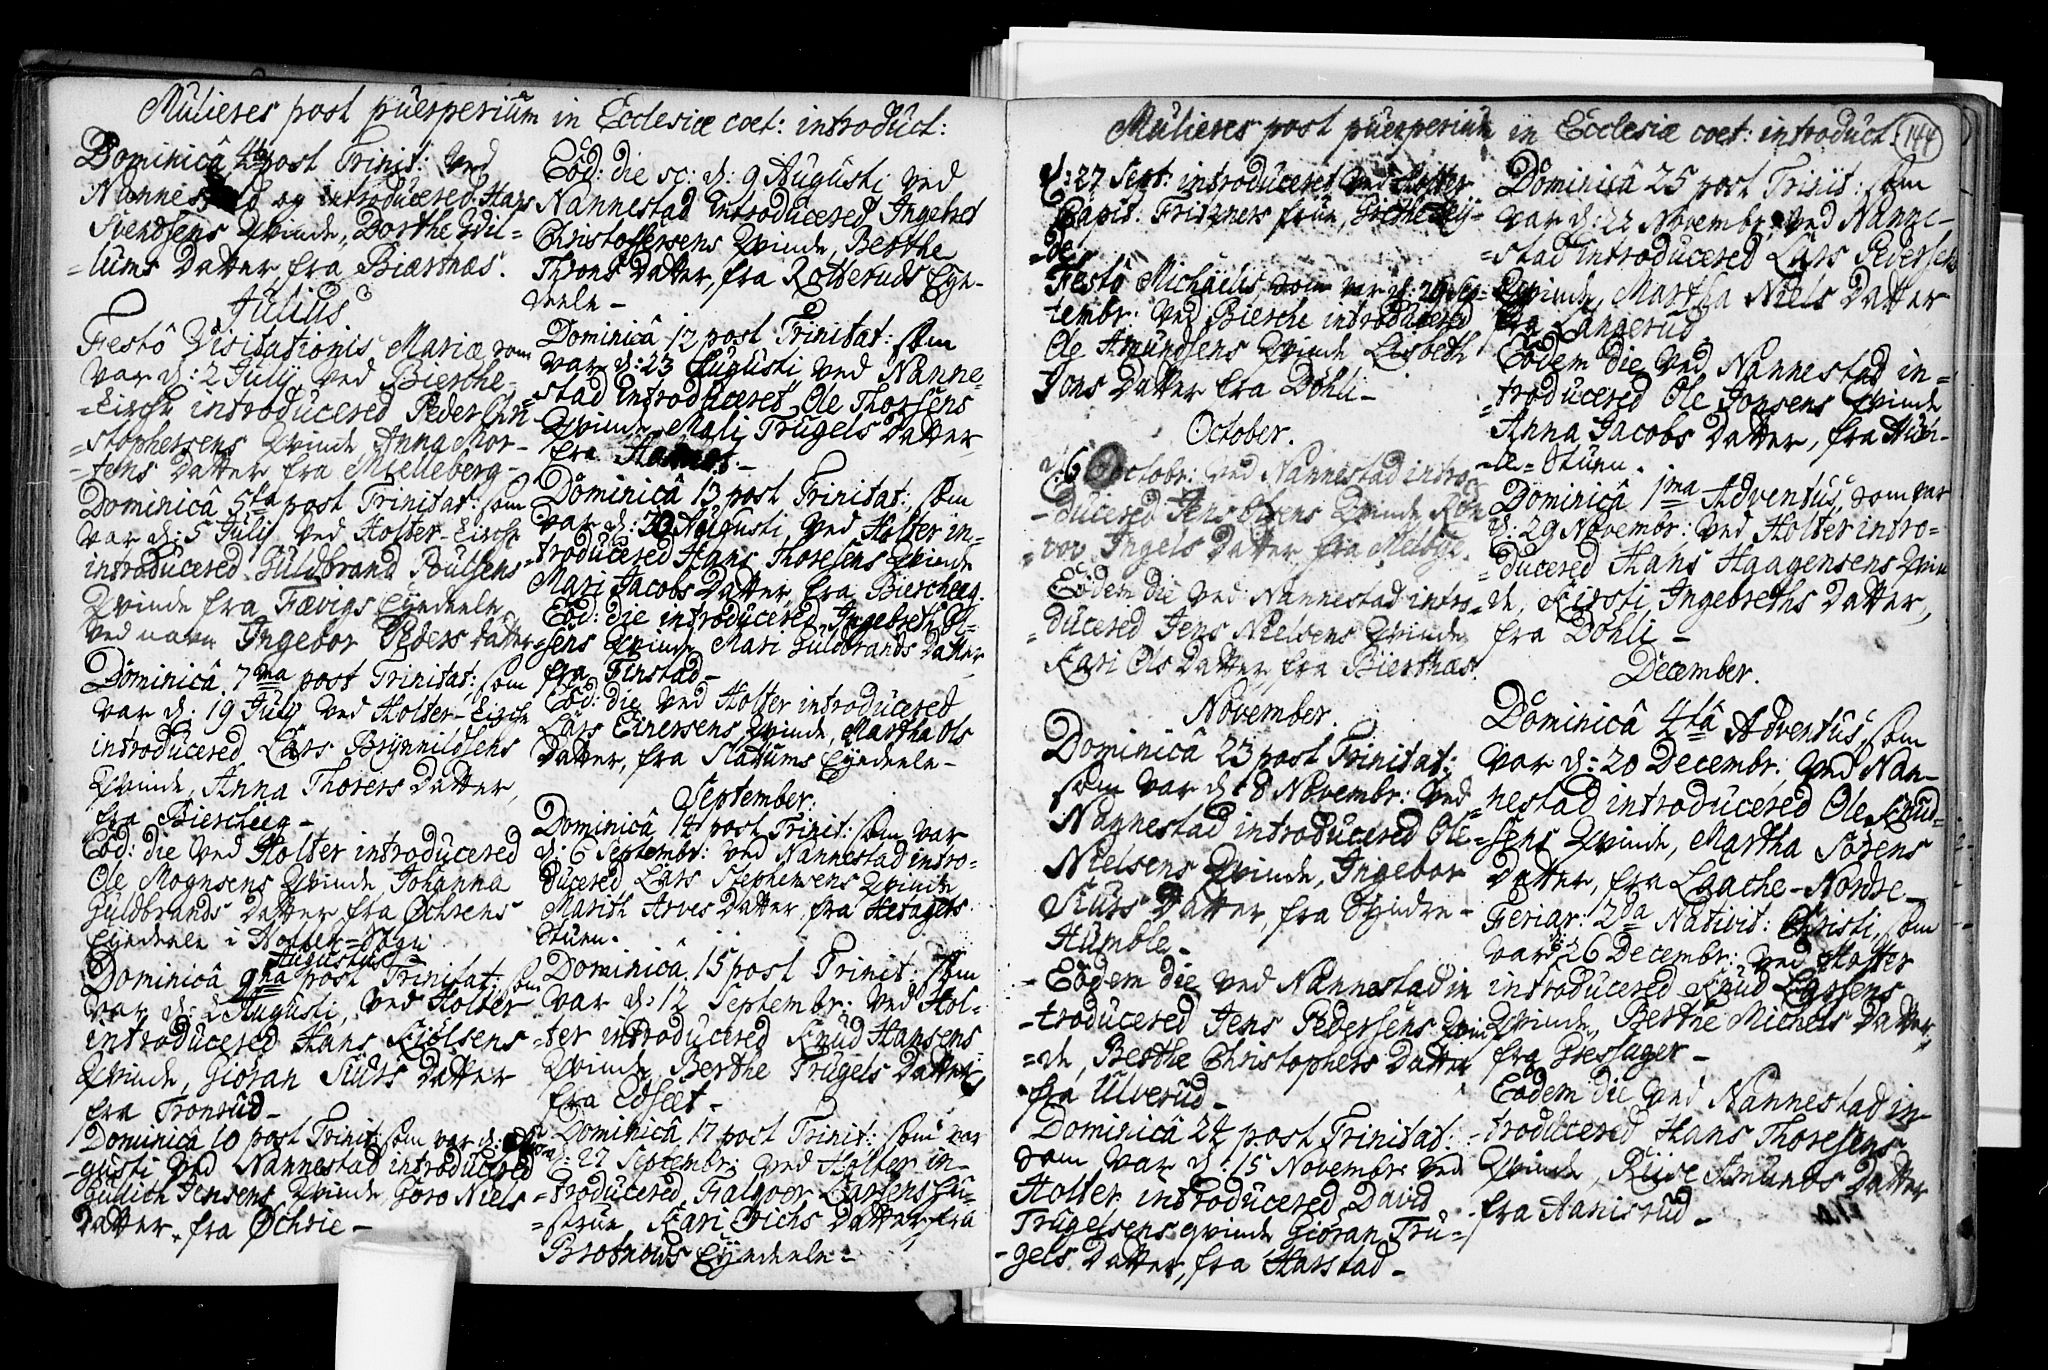 Mulieres post puerperium in Ecclesiæ coet: introduct:
Dominicâ 4ta post Trinit: ved
Nannestad og introducered Hans
Svendsens Qvinde, Dorthe Wil=
=lums Datter fra Biærtnæs.
Julius
Festô Visitationis Mariæ som
var d: 2 July ved Bierche-
=kirche introducered Peder Chri
=stophersens Qvinde Anna Mor-
=tens Datter fra Mielleberg-
Dominicâ 5ta post Trinitat: som
var d: 5 July ved Holter-kirche
introducered Guldbrand Poulsens
Qvinde fra Fævigs Eyedeele
ved navn Ingebor Peders datter
Dominicâ 7ma post Trinitat: som
var d: 19 July ved Holter-kirche
introducered Lars Brynnildsens
Qvinde, Anna Thorers Datter,
fra Biercheeg-
Eod: die ved Holter introducered
Ole Mognsens Qvinde Johanna
Guldbrands Datter fra Øchrens
Eyedeele i Holter=Sogn
Augustus
Dominicâ 9na post Trinitat: som
var d: 2 Augusti, ved Holter
introducered Hans Kiølsens
Qvinde, Giøran Siurs Datter
fra Tronrud-
Dominicâ 10 post Trinit: som var d:
-gusti ved Nannestad introducered
Gulich Jensens Qvinde Goro Niels
Datter. fra Øchrie-
Eod: die sc: d: 9 Augusti ved
Nannestad introducered Ingebret
Christoffersens Qvinde, Berthe
Throns Datter, fra Rotteruds Eye-
deele-
Dominicâ 12 post Trinitat: som
var d: 23 Augusti ved Nanne=
=stad introduceret Ole Thorsens
Qvinde Mali Trugels Datter
fra
Dominicâ 13 post Trinitat: som
var d: 30 Augusti, ved Holter in-
=troducered Hans Thoresens Qvinde
Mari Jacobs Datter, fra Biercheeg.
Eod: die introducered Ingebreth Ol=
=sens Qvinde Mari Guldbrands Datter
fra Tinstad-
Eod: die ved Holter introducered
Lars Einersens Qvinde, Martha Ols
Datter, fra Slatums Eyedeele-
September.
Dominicâ 14 post Trinit: som var
d: 6 Septembr: ved Nannestad intro-
ducered Lars Stephensens Qvinde
Marith Arves Datter, fra Hexagers
Stuen.
Dominicâ 15 post Trinit: som
var d: 12 Septembr: ved Hol-
=ter introducered Knud Hansens
Qvinde Berthe Trugels Datter,
fra Edseet-
Dominicâ 17 post Trinit: som var
d: 27 Septembr: ved Holter in-
=troducered, Falqvor Larsens hu-
=strue Kari Erichs Datter fra
Brotnous Eyedeele-
Mulieres post puerperium in Ecclesiæ coet: introduct: 144
d: 27 Sept: introduceret ved Holter
Capit: Fritzners frue, Birthe
=de
Festô Michaelis som var d: 29 Sep-
tembr: ved Bierche introducered
Ole Amundsens Qvinde Lisbeth
Jons Datter fra Döhli-
October.
d: 6 Octobr: ved Nannestad intro-
-ducered Jens Olsens Qvinde Ron
=vov Ingels Datter fra
Eodem die ved Nannestad intro-
=ducered Jens Nielsens Qvinde
Kari Ols Datter, fra Biertnæs.
November.
Dominicâ 23 post Trinitat:
som var d: 8 Novembr: ved
Nannestad introducered Ole
Nielsens Qvinde, Ingebor
Siurs Datter, fra Syndre-
Humble-
-Eodem die ved Nannestad in
-troducered Jens Pedersens Qvin
=de, Berthe Christophers Datter
fra Ulverud-
Dominicâ 24 post Trinitat:
som var d: 15 Novembr: ved
Holter, introducered David
Trugelsens qvinde Giøran Tru=
-gels Datter, fra Harstad-
Dominicâ 25 post Trinit: som
var d: 22 Novembr: ved Nanne-
=stad introducered Lars Pedersens
Qvinde, Martha Niels Datter
fra Langerud
Eodem die ved Nannestad in=
=troducered Ole Jonsens Qvinde
Anna Jacobs Datter, fra
Stuen.
Dominicâ 1ma Adventus, som var
d: 29 Novembr: ved Holter intro=
=ducered Hans Haagensens Qvin
de, Kirsti Ingebreths Datter,
fra Döhli-
December.
Dominicâ 4tâ Adventus, som
var d: 20 Decembr: ved Nan-
=nestad introducered Ole Knud=
=sens Qvinde, Martha Sörens
Datter, fra Laache-Nordre-
Feriar: 2da Nativit: Christi, som
var d: 26 Decembr: ved Holter
introducered Knud
Qvinde, Berthe Michels Datter,
fra Bressager-
Eodem die ved Nannestad in-
-troducered Hans Thoresens
Qvinde, Amunds Datter
fra Aanisrud-